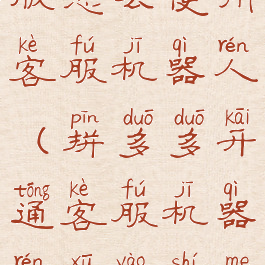 kè fú jī qì rén
客服机器人
pīn duō duō kāi
（拼多多开
tōng kè fú jī qì
通客服机器
rén xū yào shí me